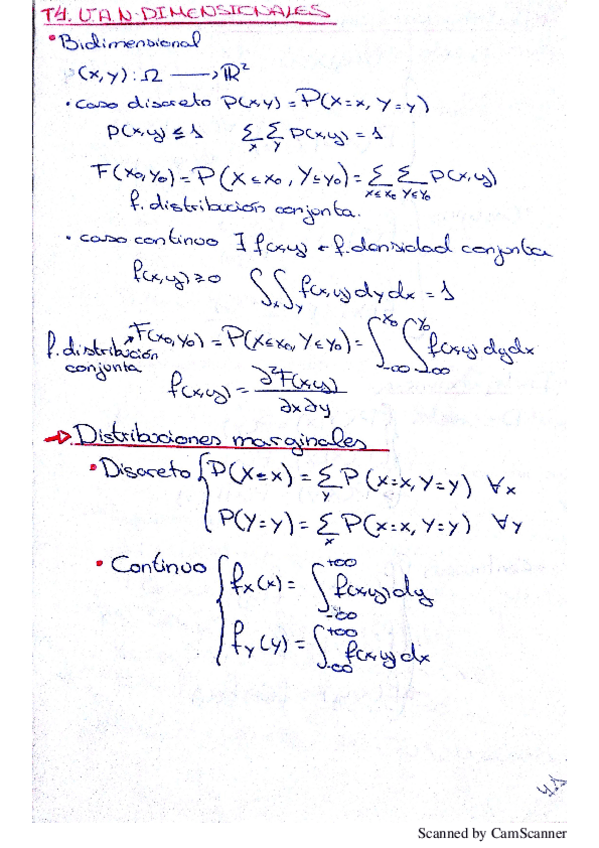 T4. V.A. N-DIMENSIONALES
• Bidimensional
(X,Y): Ω ⟶ ℝ²
• caso discreto P(x,y) = P(X=x, Y=y)
P(x,y) ≤ 1 ∑x ∑y P(x,y) = 1
F(x₀,y₀) = P(X≤x₀, Y≤y₀) = ∑x≤x₀ ∑y≤y₀ P(x,y)
f. distribución conjunta.
• caso continuo ∃ f(x,y) = f. densidad conjunta
f(x,y) ≥ 0 ∫x ∫y f(x,y) dy dx = 1
f. distribución conjunta → F(x₀,y₀) = P(X≤x₀, Y≤y₀) = ∫-∞^x₀ ∫-∞^y₀ f(x,y) dy dx
f(x,y) = ∂²F(x,y) / ∂x∂y
→ Distribuciones marginales
• Discreto { P(X=x) = ∑y P(X=x, Y=y) ∀x
P(Y=y) = ∑x P(X=x, Y=y) ∀y
• Continuo { fX(x) = ∫-∞^+∞ f(x,y) dy
fY(y) = ∫-∞^+∞ f(x,y) dx
Scanned by CamScanner